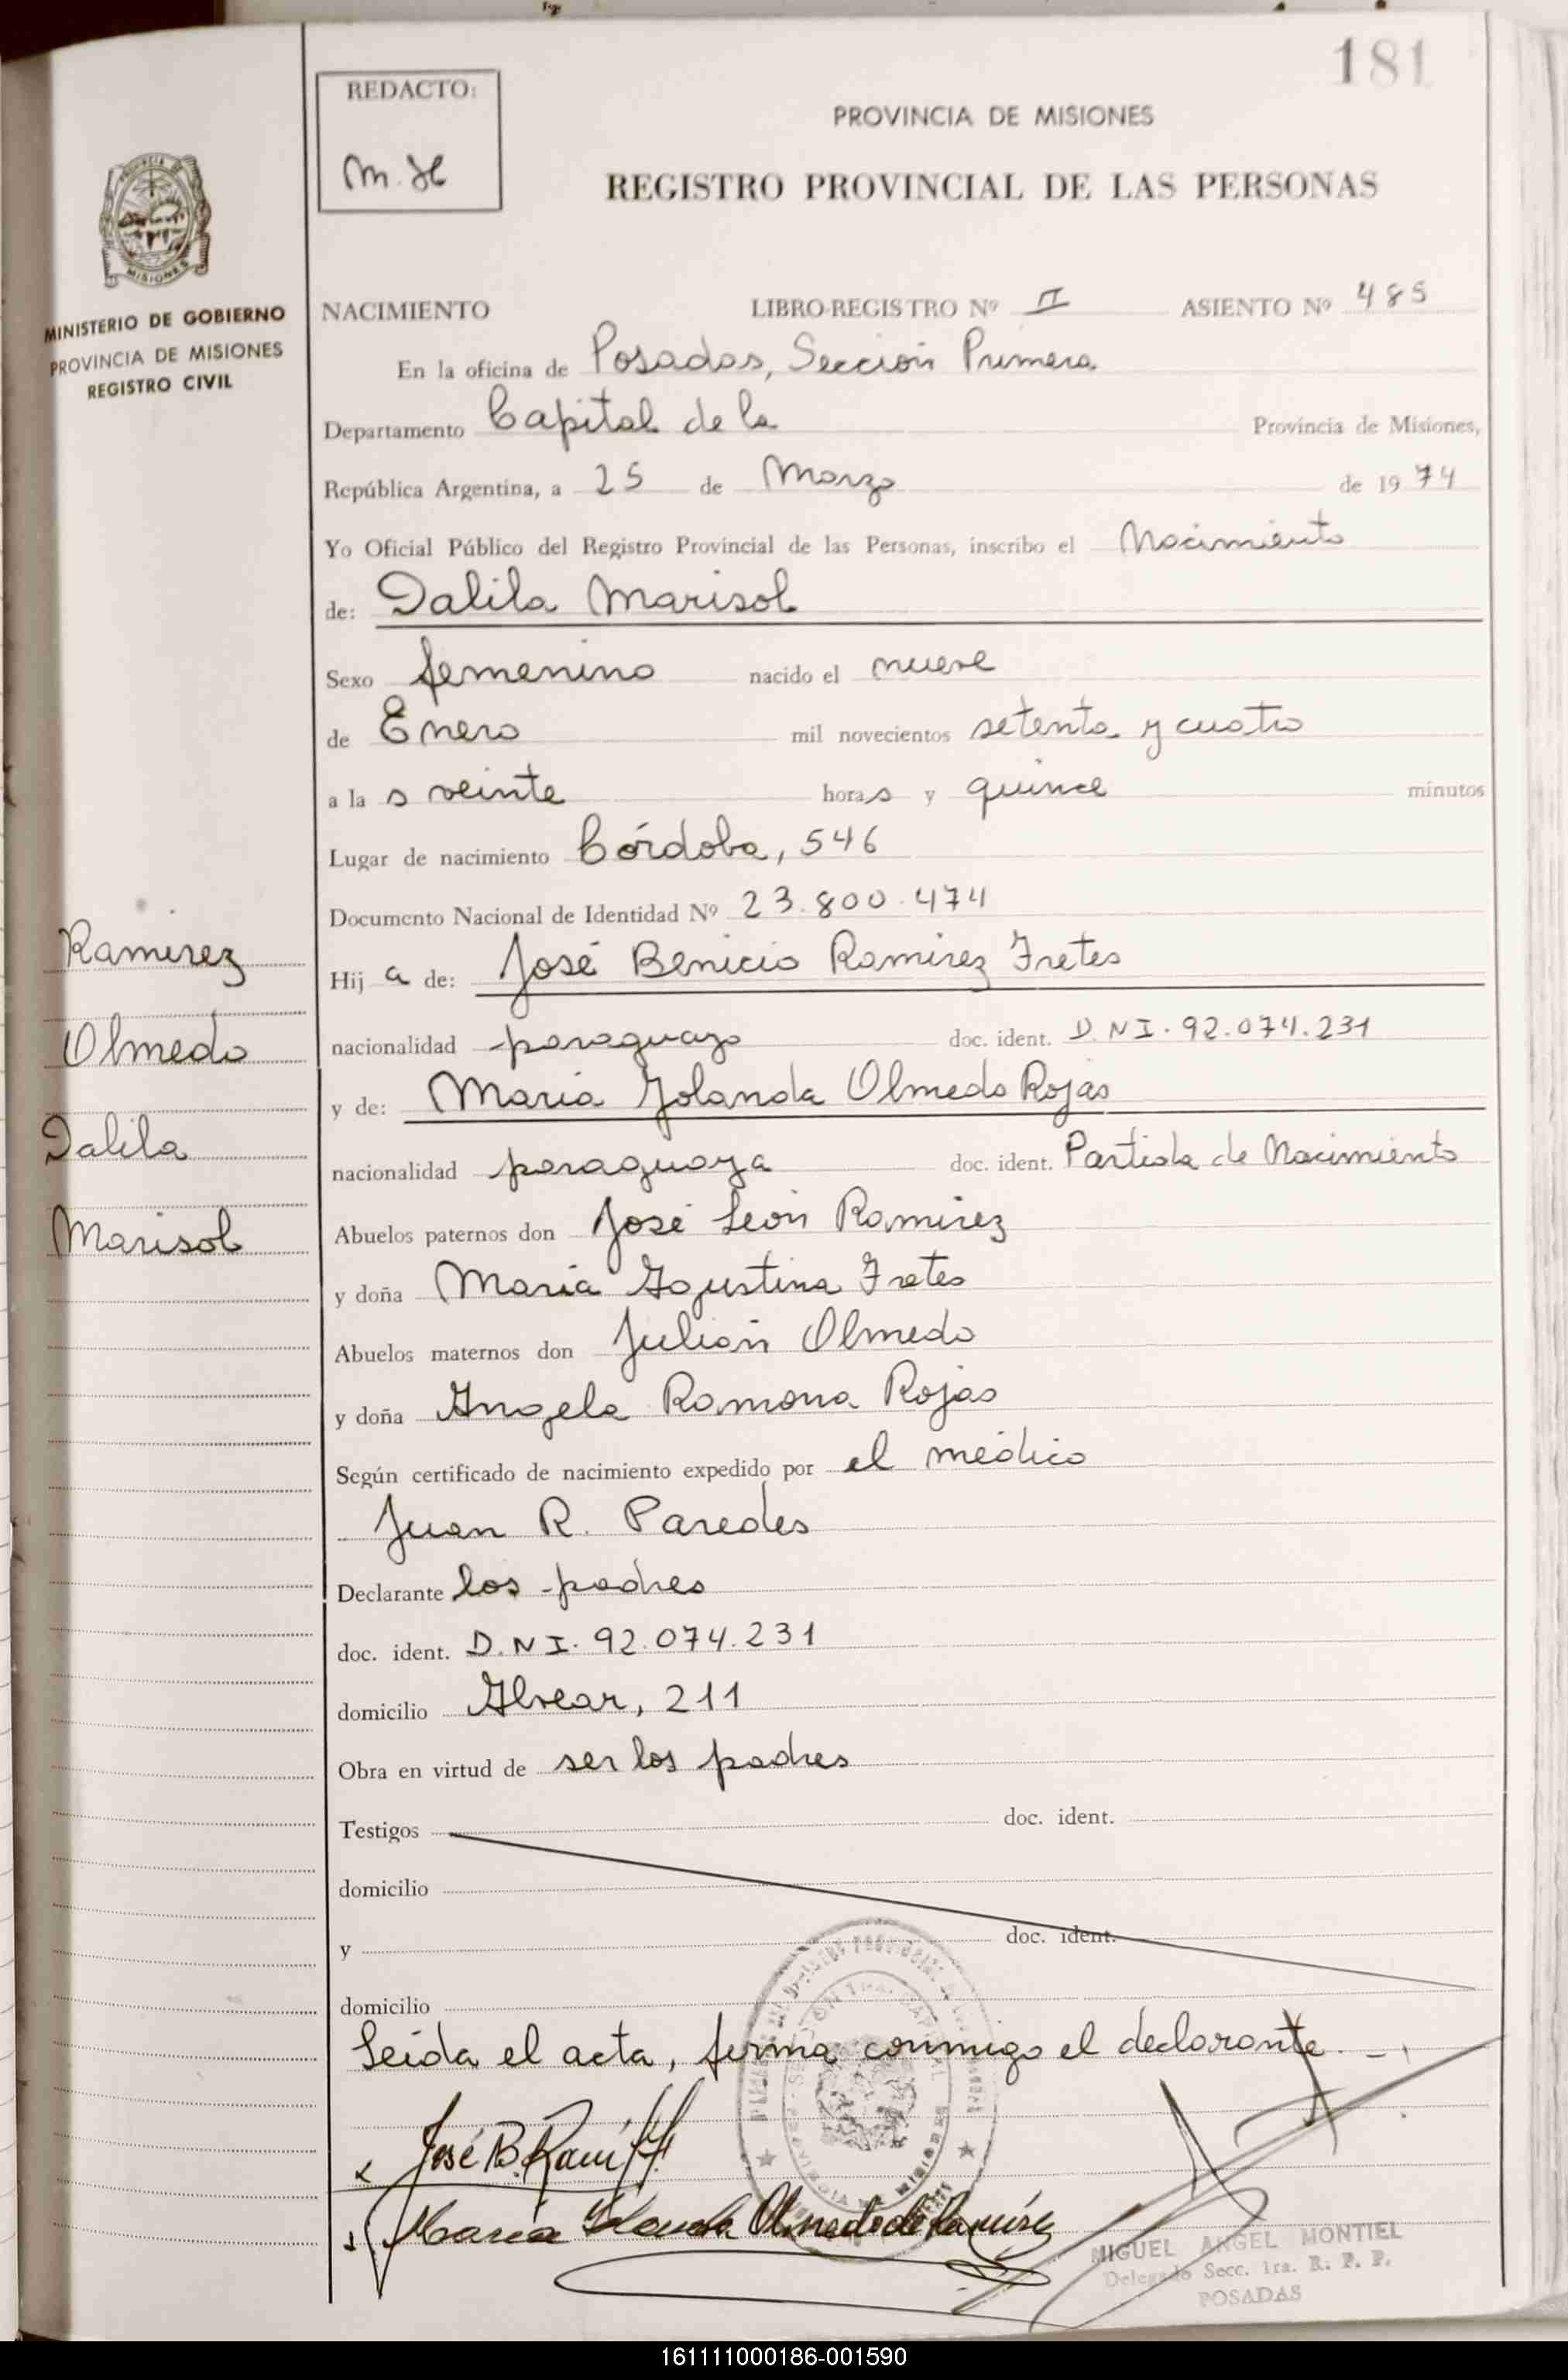 181
REDACTO:
PROVINCIA DE MISIONES
REGISTRO PROVINCIAL DE LAS PERSONAS
MISIONES
MINISTERIO DE GOBIERNO
PROVINCIA DE MISIONES
REGISTRO CIVIL
NACIMIENTO LIBRO-REGISTRO Nº II ASIENTO Nº 485
En la oficina de Posadas, Sección Primera
Departamento Capital de la Provincia de Misiones,
República Argentina, a 25 de Marzo de 1974
Yo Oficial Público del Registro Provincial de las Personas, inscribo el Nacimiento
de: Dalila Marisol
Sexo femenino nacido el nueve
de Enero mil novecientos setenta y cuatro
a la s veinte horas y quince minutos
Lugar de nacimiento Córdoba, 546
Documento Nacional de Identidad Nº 23.800.474
Hij a de: José Benicio Ramirez Fretes
nacionalidad paraguayo doc. ident. D.N.I. 92.074.231
y de: Maria Yolanda Olmedo Rojas
nacionalidad paraguaya doc. ident. Partida de Nacimiento
Abuelos paternos don José León Ramirez
y doña María Agustina Fretes
Abuelos maternos don Julián Olmedo
y doña Angela Ramona Rojas
Según certificado de nacimiento expedido por el médico
Juan R. Paredes
Declarante los padres
doc. ident. D.N.I. 92.074.231
domicilio Alvear, 211
Obra en virtud de ser los padres
Testigos doc. ident.
domicilio
y doc. ident.
domicilio
Leída el acta, firma conmigo el declarante.
Ramirez
Olmedo
Dalila
Marisol
José B. Ramí
María Yolanda Olmedo de Ramírez
MIGUEL ANGEL MONTIEL
Delegado Secc. 1ra. R. P. P.
POSADAS
161111000186-001590